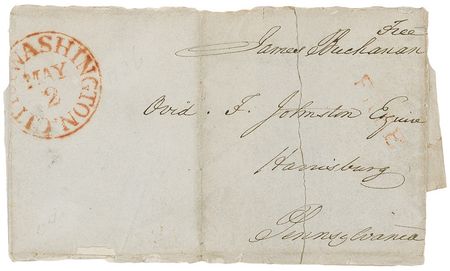 Free
James Buchanan
WASHINGTON CITY
MAY
2
FREE
Ovid. F. Johnston Esquire
Harrisburg
Pennsylvania